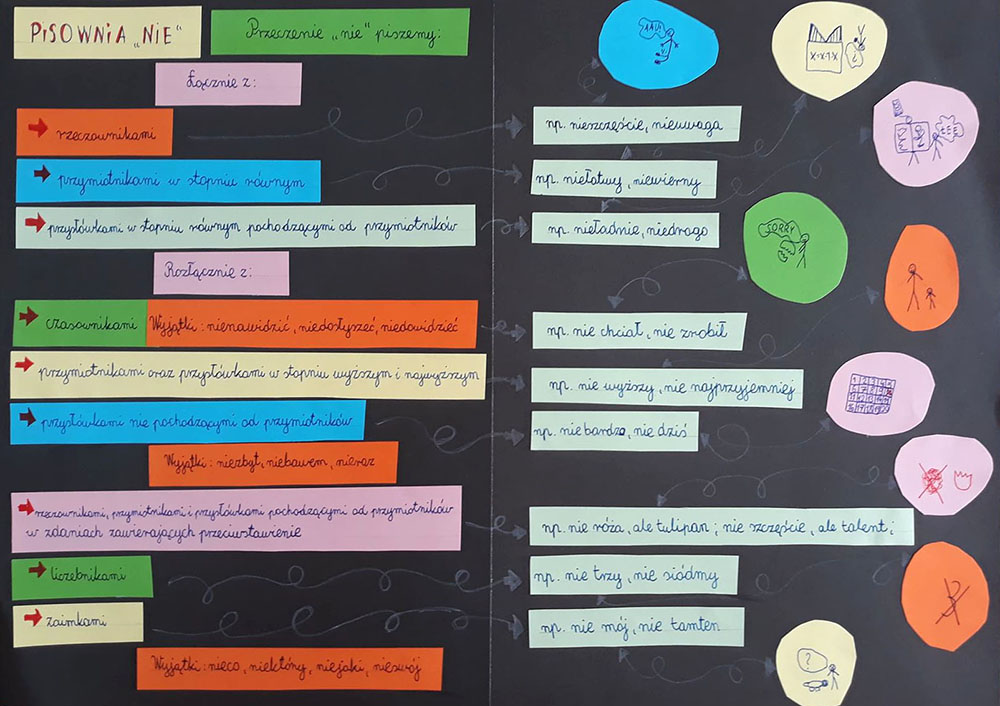 PiSOWNiA „NIE”
Przeczenie „nie” piszemy:
Łącznie z:
rzeczownikami
np. nieszczęście, nieuwaga
przymiotnikami w stopniu równym
np. niełatwy, niewierny
przysłówkami w stopniu równym pochodzącymi od przymiotników
np. nieładnie, niedrogo
Rozłącznie z:
czasownikami Wyjątki: nienawidzić, niedosłyszeć, niedowidzieć
np. nie chciał, nie zrobił
przymiotnikami oraz przysłówkami w stopniu wyższym i najwyższym
np. nie wyższy, nie najprzyjemniej
przysłówkami nie pochodzącymi od przymiotników
np. nie bardzo, nie dziś
Wyjątki: niezbyt, niebawem, nieraz
rzeczownikami, przymiotnikami i przysłówkami pochodzącymi od przymiotników
w zdaniach zawierających przeciwstawienie
np. nie róża, ale tulipan; nie szczęście, ale talent;
liczebnikami
np. nie trzy, nie siódmy
zaimkami
np. nie mój, nie tamten
Wyjątki: nieco, niektóry, niejaki, nieswój
SORRY
?